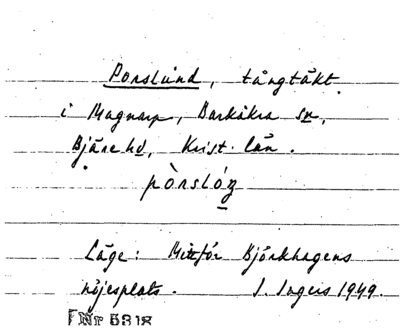 Porslund, tångtäkt
i Magnarp, Barkåkra sn,
Bjäre hd, Krist. län.
pòrslóz
Läge: Mittför Björkhagens
nöjesplats. J. Ingers 1949.
Nr 5318